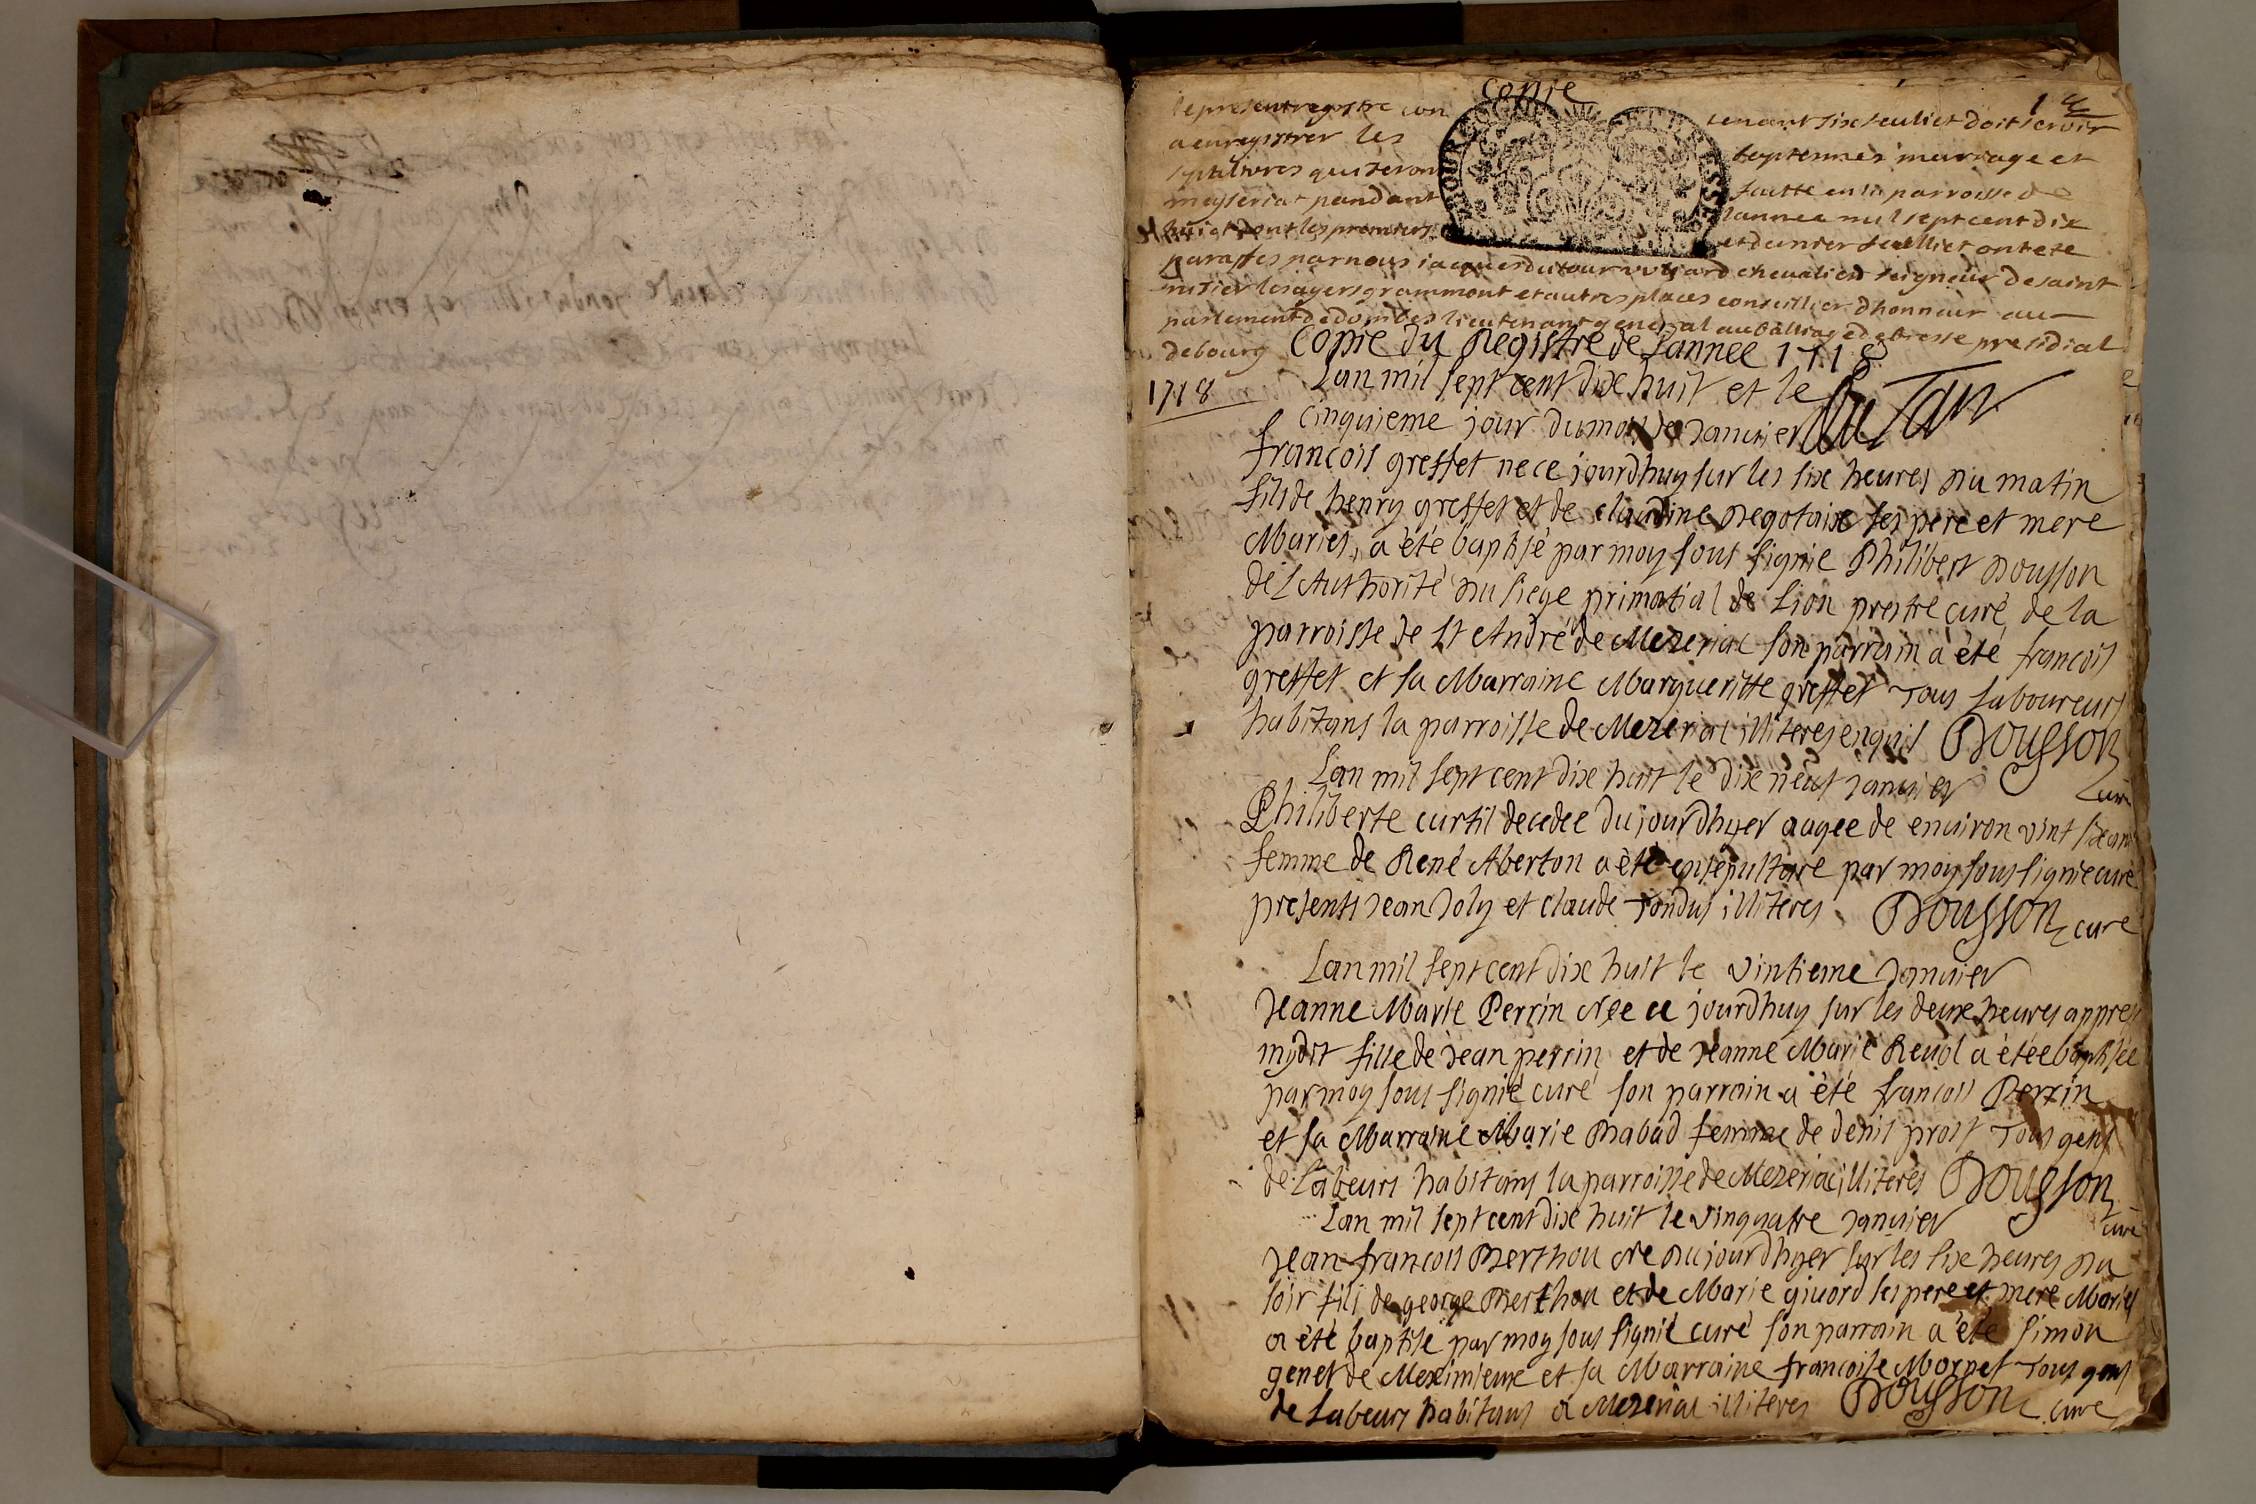 copie
1 er
le present registre con tenant six feuliet doit servir
a enregistrer les baptesmes mariage et
sepultures qui seront faitte en la parroisse de
meyseriat pandant lannee mil sept cent dix
huict dont les premiers et dernier feulliet ont ete
paraffes par nous iacques du tour vulliard chevalier seigneur de saint
nisier les ayers grammont et autres places conseillier dhonneur au
parlement de dombes lieutenant general au balliage de bresse presidial
de bourg
Copie du Registre de Lannee 1718
1718
Lan mil sept cent dix huit et le
cinquieme jour du mois de Janvier
francois greffet ne ce jourdhuy sur les six heures du matin
fils de henry greffet et de claudine degotaix ses pere et mere
Maries, a été baptisé par moy sous signie Philibert Dousson
de L'Authorité du siege primatial de Lion prestre curé de la
parroisse de St André de Mezeriat son parrain a été francois
greffet et sa Marraine Margueritte greffet Tous laboureurs
habitans la parroisse de Mezeriat illiteres enquis Dousson
curé
Lan mil sept cent dix huit le dix neuf Janvier
Philiberte curtil decedee du jourdhyer aagee de environ vint six ans
femme de René Aberton a été ensepulture par moy sous signie curé
presents Jean Joly et claude Tondus illiteres Dousson curé
Lan mil sept cent dix huit le vintieme Janvier
Jeanne Marie Perrin Née ce jourdhuy sur les deux heures appres
mydit fille de Jean perrin et de Jeanne Marie Revol a étée baptisée
par moy sous signié curé son parrain a été francois Perrin
et sa Marraine Marie Rabad femme de denis prost Tous gens
de Labeurs habitans la parroisse de Mezeriat illiteres Dousson
curé
Lan mil sept cent dix huit le vinquatre Janvier
Jean francois Berthou Né du jourdhyer sur les six heures du
soir fils de george Berthou et de Marie givord ses pere et mere Maries
a été baptise par moy sous signié curé son parrain a été simon
genet de Meximieux et sa Marraine francoise Mornet Tous gens
de Labeurs habitans a Mezeriat illiteres Dousson curé